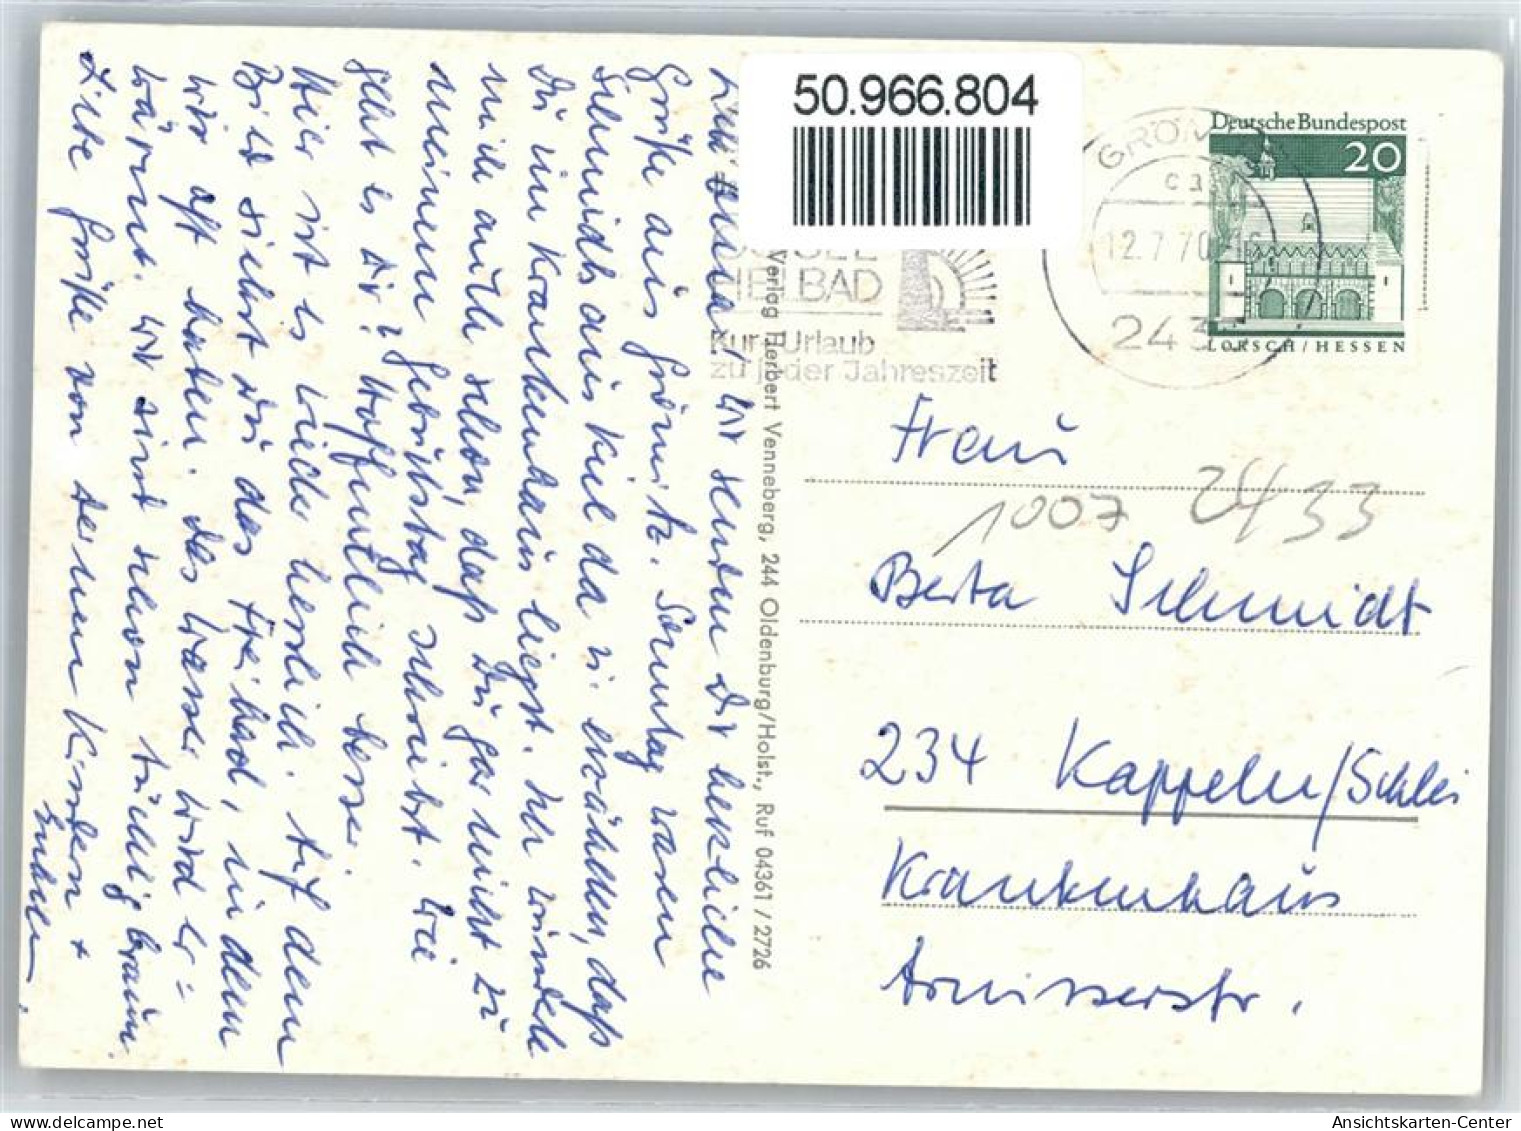 50.966.804
Deutsche Bundespost
20
LORSCH/HESSEN
GRÖM
ca
12.7.70-16
243
HEILBAD
Kur Urlaub
zu jeder Jahreszeit
Verlag Herbert Venneberg, 244 Oldenburg/Holst., Ruf 04361/2726
wir senden Dir herzliche
Grüße aus Grömitz. Sonntag waren
Schmidts aus Kiel da u. erzählten, daß
Du im Krankenhaus liegst. Ich wunderte
mich auch schon, daß Du gar nicht zu
meinem Geburtstag schreibst. Wie
geht es Dir? Hoffentlich besser.
Hier ist es wieder herrlich. Auf dem
Bild siehst Du das Freibad, in dem
wir oft baden. Das Wasser wird er=
wärmt. Wir sind schon tüchtig braun.
Liebe Grüße von deinen Kindern +
Enkeln.
Frau
1007 2433
Berta Schmidt
234 Kappeln/Schlei
Krankenhaus
Arnisserstr.
Ansichtskarten-Center